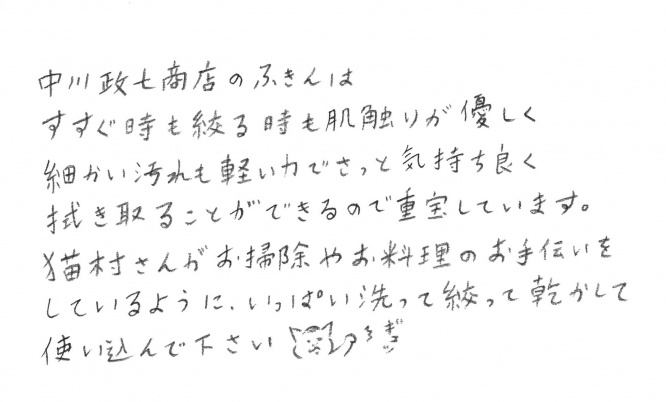 中川政七商店のふきんは
すすぐ時も絞る時も肌触りが優しく
細かい汚れも軽い力でさっと気持ち良く
拭き取ることができるので重宝しています。
猫村さんがお掃除やお料理のお手伝いを
しているように、いっぱい洗って絞って乾かして
使い込んで下さい